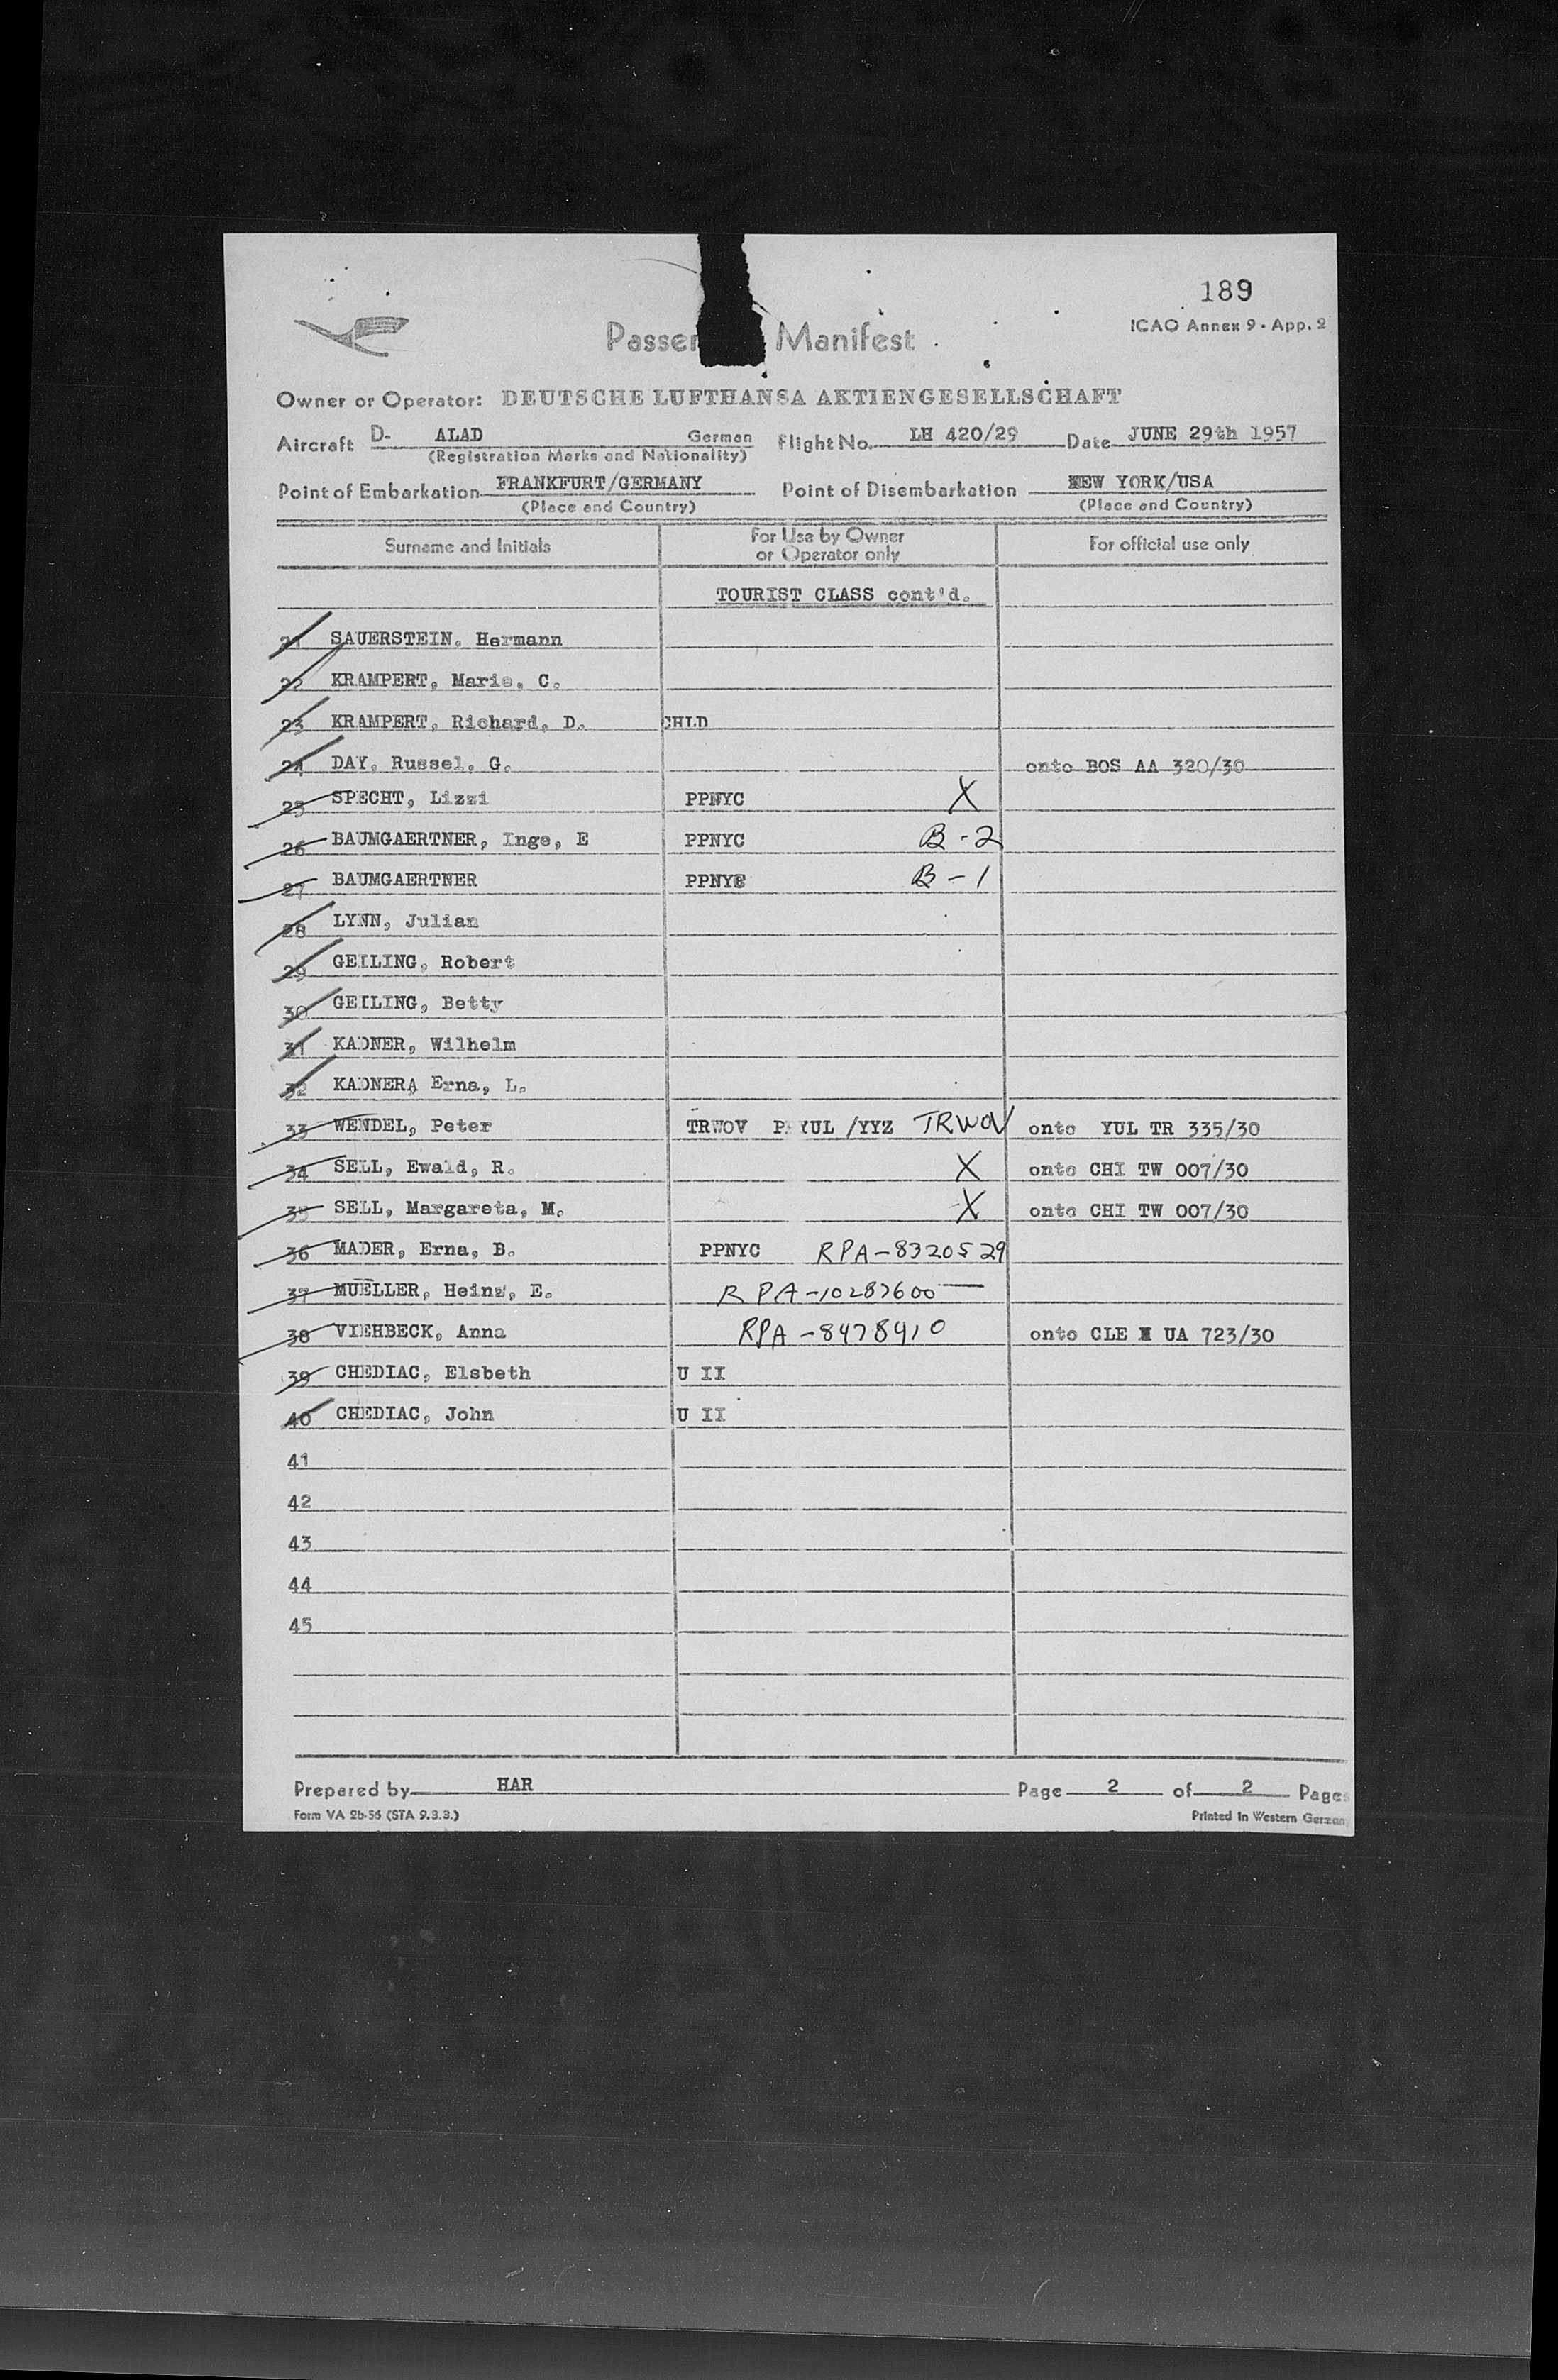 189
ICAO Annex 9 - App. 2
Passen Manifest
Owner or Operator: DEUTSCHE LUFTHANSA AKTIENGESELLSCHAFT
Aircraft D- ALAD German Flight No. LH 420/29 Date JUNE 29th 1957
(Registration Marks and Nationality)
Point of Embarkation FRANKFURT/GERMANY Point of Disembarkation NEW YORK/USA
(Place and Country) (Place and Country)
Surname and Initials For Use by Owner or Operator only For official use only
TOURIST CLASS cont'd.
21 SAUERSTEIN. Hermann
22 KRAMPERT, Marie, C.
23 KRAMPERT, Richard, D. CHLD
24 DAY, Russel, G. onto BOS AA 320/30
25 SPECHT, Lizzi PPNYC X
26 BAUMGAERTNER, Inge, E PPNYC B-2
27 BAUMGAERTNER PPNYC B-1
28 LYNN, Julian
29 GEILING, Robert
30 GEILING, Betty
31 KADNER, Wilhelm
32 KADNERA Erna, L.
33 WENDEL, Peter TRWOV P YUL /YYZ TRWOV onto YUL TR 335/30
34 SELL, Ewald, R. X onto CHI TW 007/30
35 SELL, Margareta, M. X onto CHI TW 007/30
36 MADER, Erna, B. PPNYC RPA-8320529
37 MUELLER, Heinz, E. RPA-10287600
38 VIEHBECK, Anna RPA-8478910 onto CLE UA 723/30
39 CHEDIAC, Elsbeth U II
40 CHEDIAC, John U II
41
42
43
44
45
Prepared by HAR Page 2 of 2 Pages
Form VA 2b-56 (STA 9.3.3.) Printed in Western German